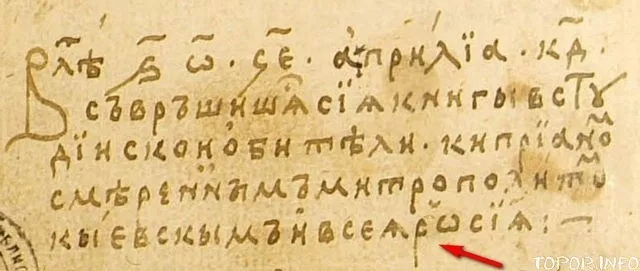 В лѣⷮ ҂ѕ҃ ѿ҃ ч҃е · априліа · к҃д ·
съвръшишѧсѧ сіѧ книгы въ сту
дійской обители · кипріаномъ
смѣреннымъ митрополитѡⷨ
кыевскымъ и всеѧ рѡсіѧ :~
TOPOR.INFO